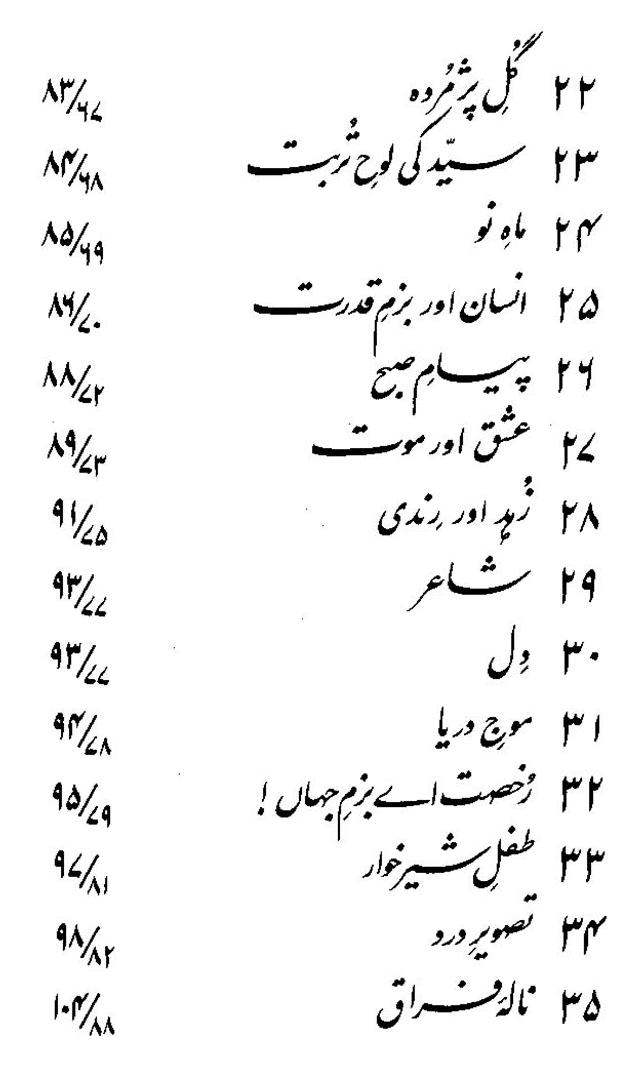 ۲۲ گُلِ پژمُردہ ۸۳/۶۷
۲۳ سیّد کی لوحِ تُربت ۸۴/۶۸
۲۴ ماہِ نو ۸۵/۶۹
۲۵ انسان اور بزمِ قدرت ۸۶/۷۰
۲۶ پیامِ صبح ۸۸/۷۲
۲۷ عشق اور موت ۸۹/۷۳
۲۸ زُہد اور رِندی ۹۱/۷۵
۲۹ شاعر ۹۳/۷۷
۳۰ دِل ۹۳/۷۷
۳۱ موجِ دریا ۹۴/۷۸
۳۲ رُخصت اے بزمِ جہاں ! ۹۵/۷۹
۳۳ طفلِ شیر خوار ۹۷/۸۱
۳۴ تصویرِ درد ۹۸/۸۲
۳۵ نالۂ فراق ۱۰۴/۸۸